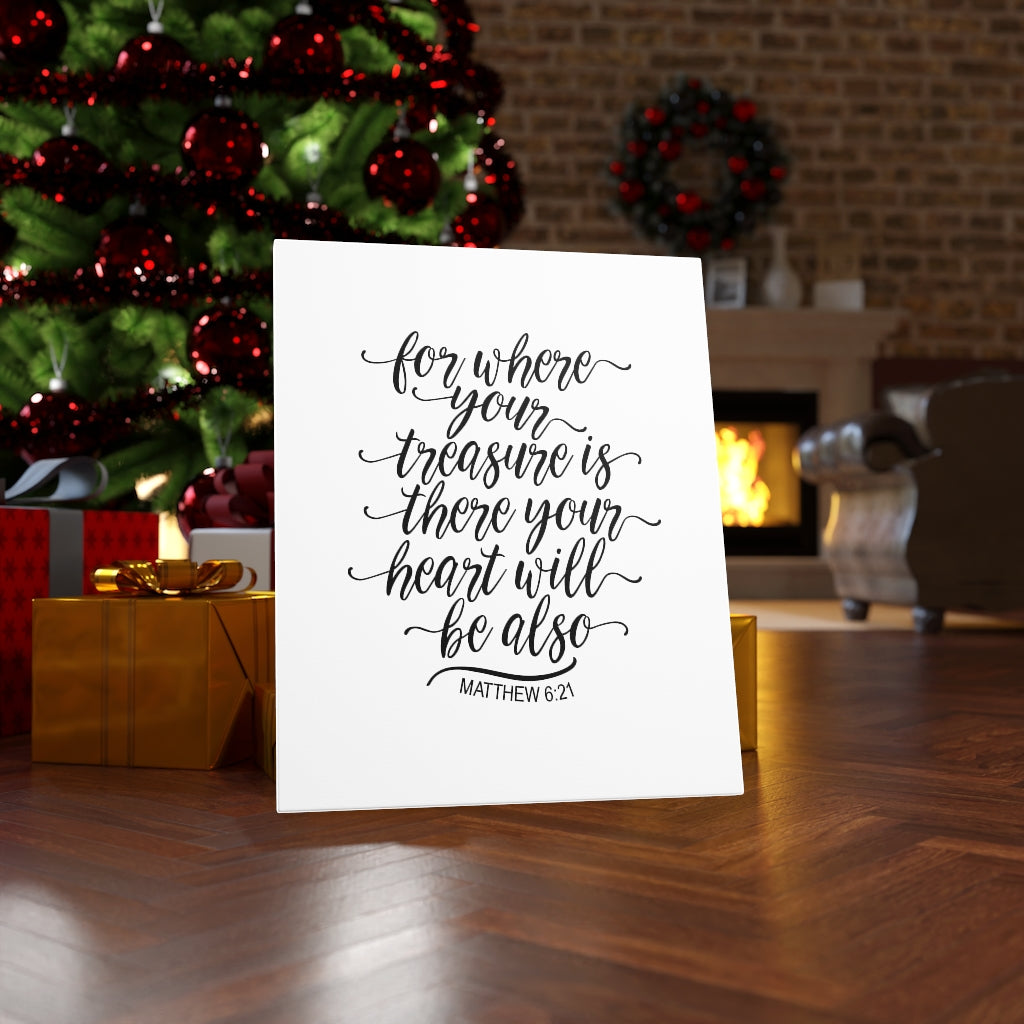 for where
your
treasure is
there your
heart will
be also
MATTHEW 6:21